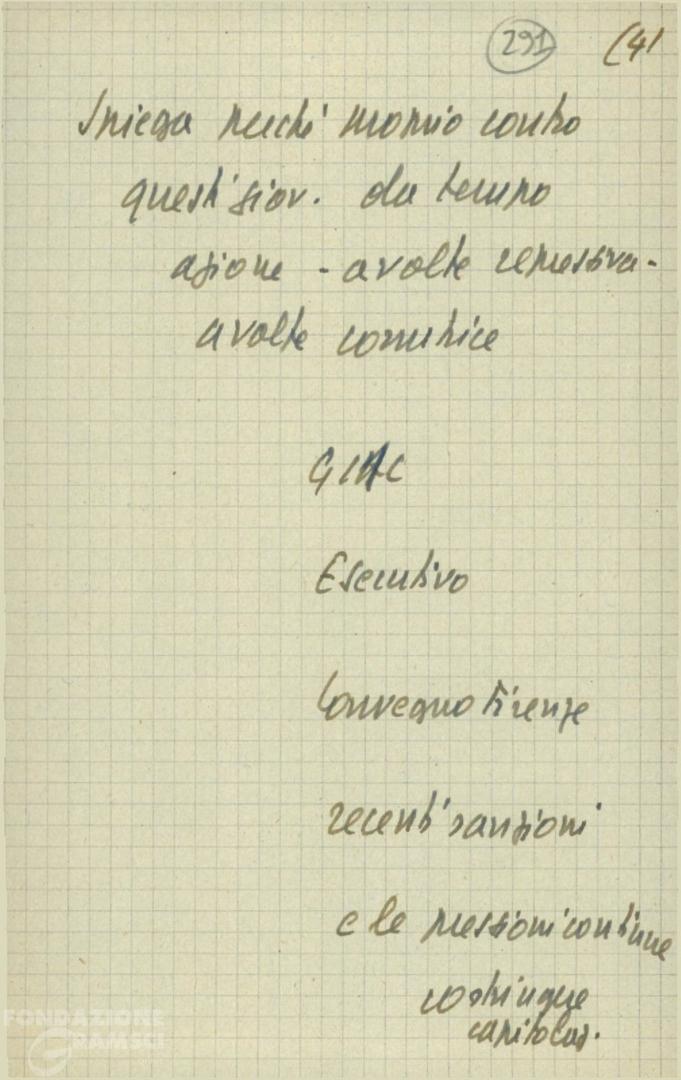 291 (4)
Spiega perché proprio contro
questi giov. da tempo
azione - a volte repressiva -
a volte corruttrice
GIAC
Esecutivo
Convegno Firenze
recenti sanzioni
e le pressioni continue
costringue
capitolaz.
FONDAZIONE
GRAMSCI